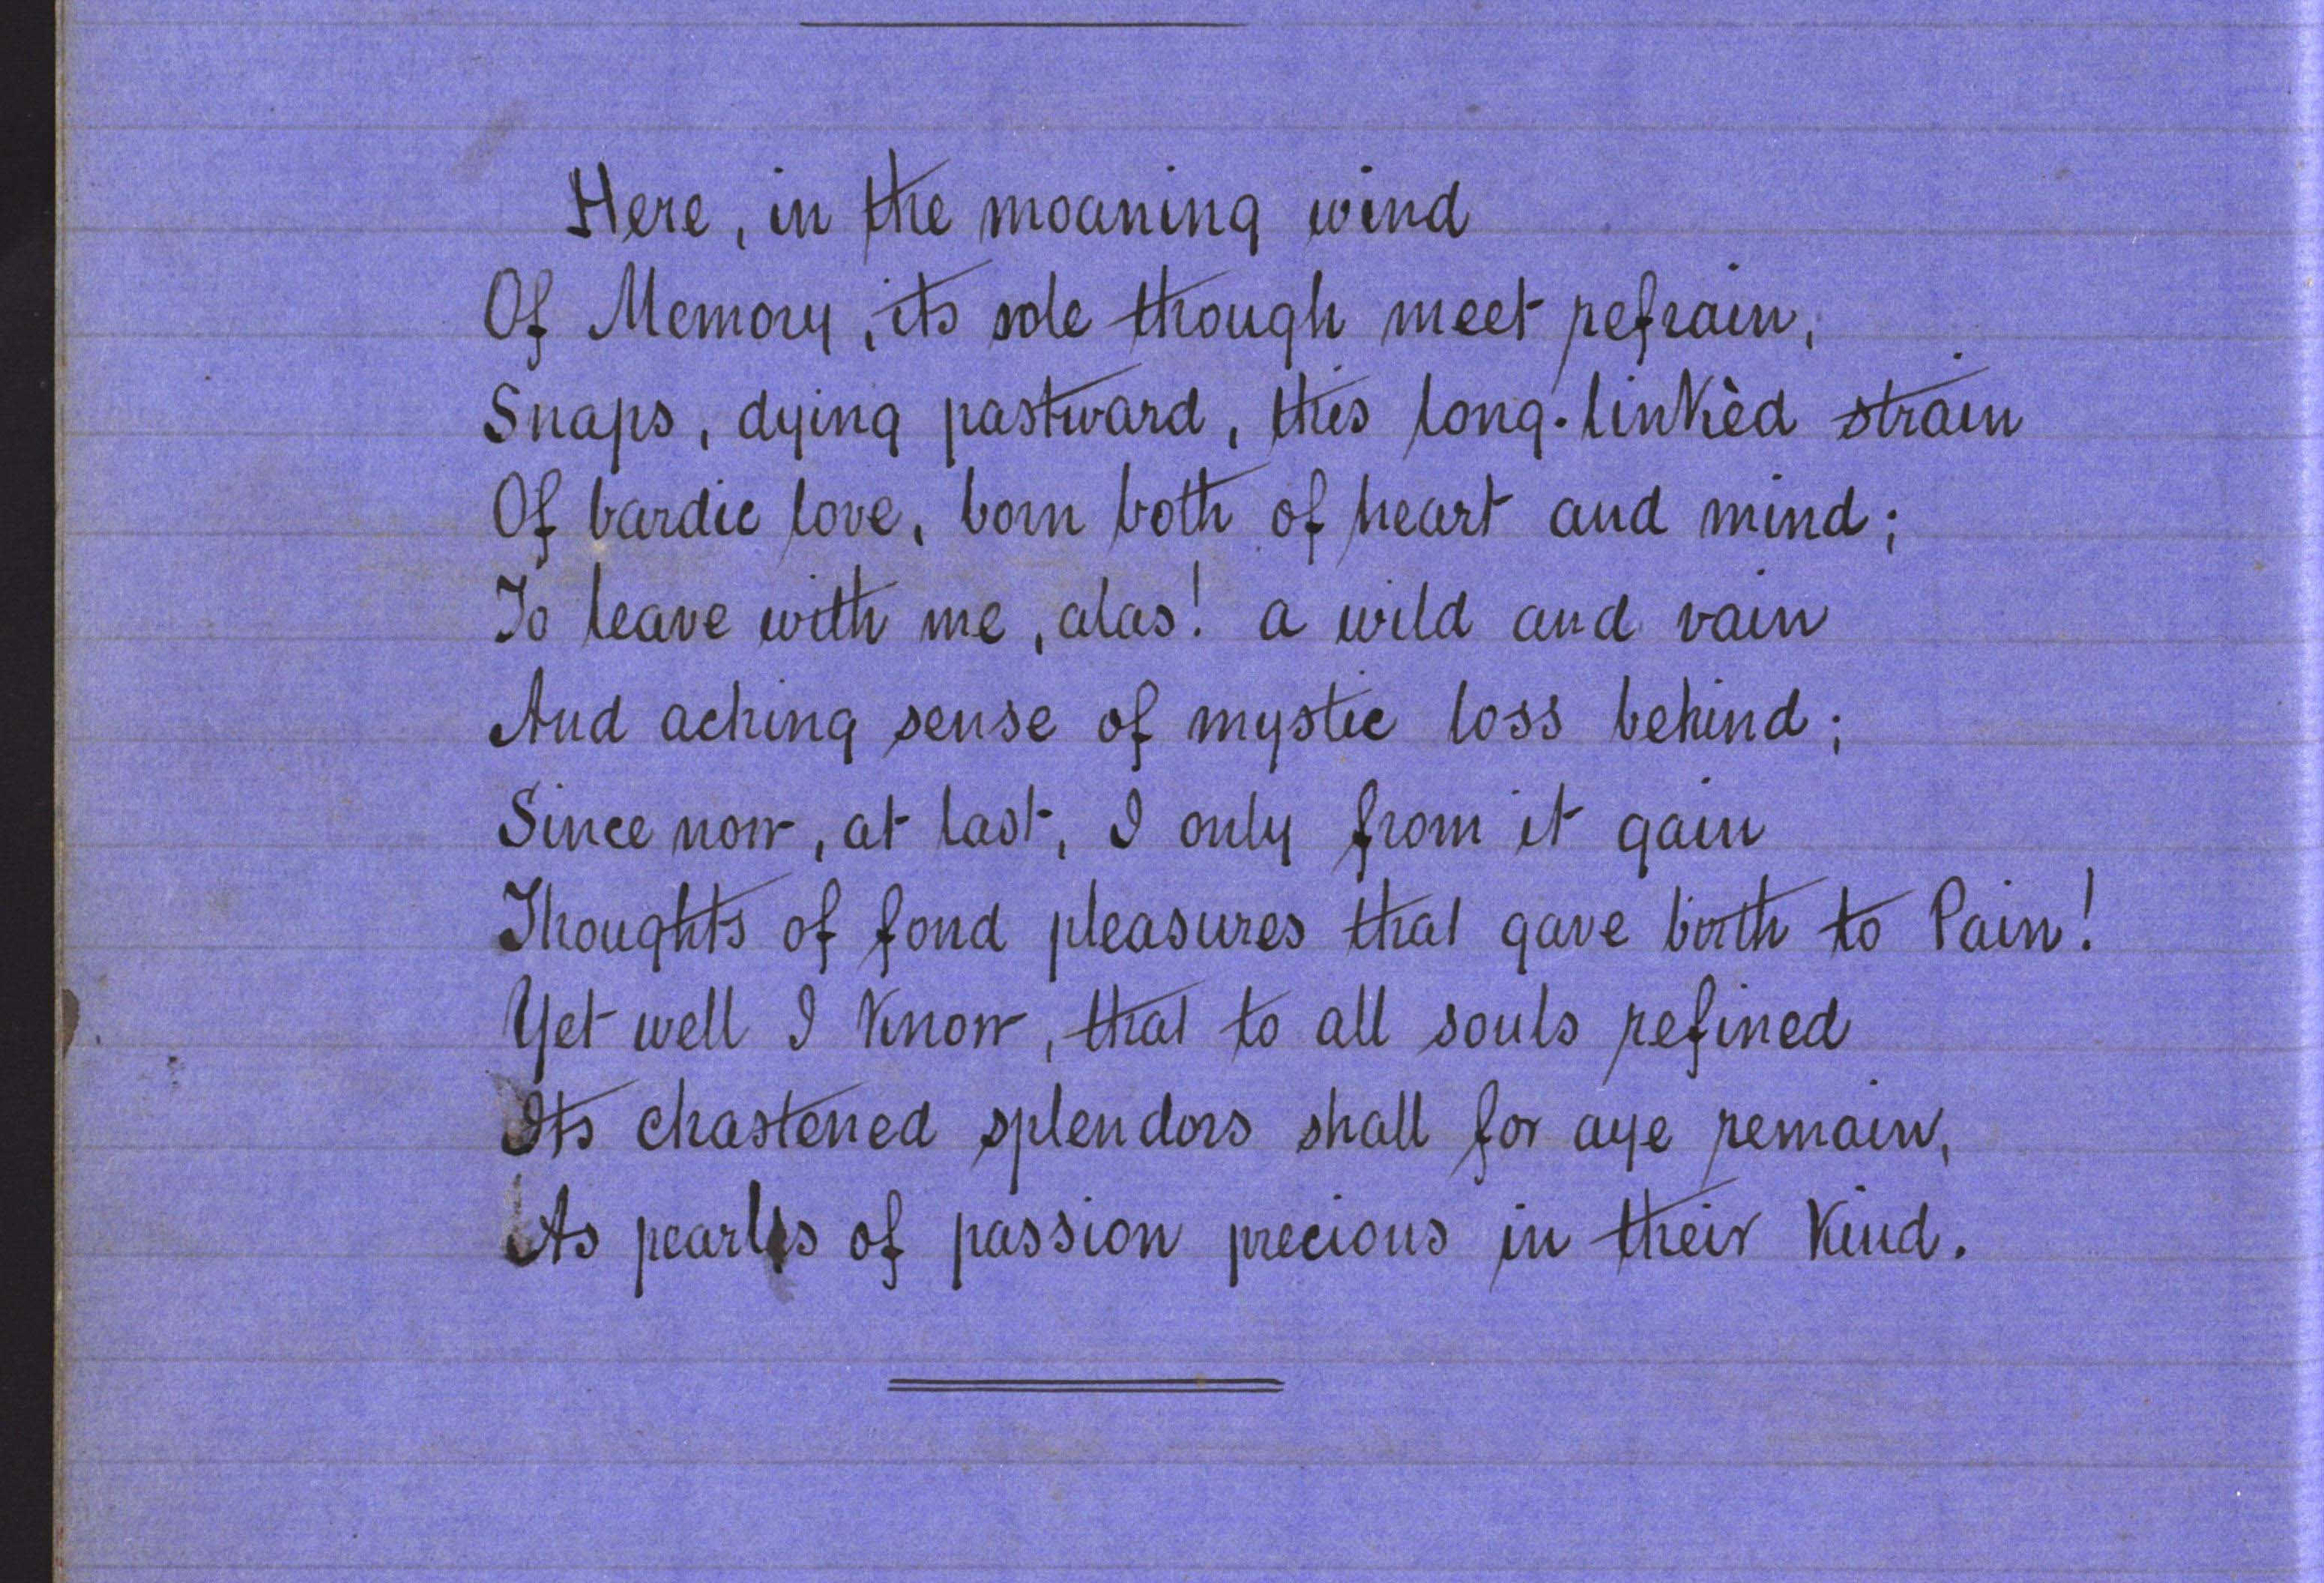 Here, in the moaning wind
Of Memory, its sole though meet refrain,
Snaps, dying pastward, this long-linkèd strain
Of bardic love, born both of heart and mind;
To leave with me, alas! a wild and vain
And aching sense of mystic loss behind;
Since now, at last, I only from it gain
Thoughts of fond pleasures that gave birth to Pain!
Yet well I know, that to all souls refined
Its chastened splendors shall for aye remain,
As pearls of passion precious in their kind.